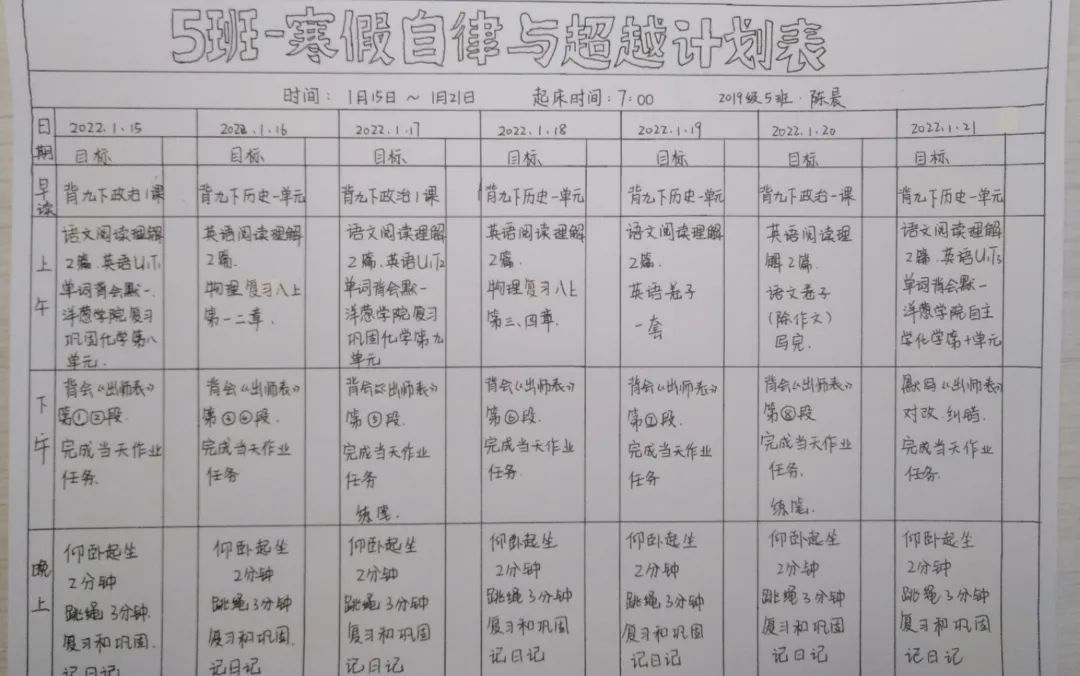 5班-寒假自律与超越计划表
时间： 1月15日 ～ 1月21日 起床时间：7：00 2019级5班·陈晨
日期 2022.1.15 2022.1.16 2022.1.17 2022.1.18 2022.1.19 2022.1.20 2022.1.21
目标 目标 目标 目标 目标 目标 目标
早读 背九下政治1课 背九下历史一单元 背九下政治1课 背九下历史一单元 背九下历史一单元 背九下政治一课 背九下历史一单元
上午
语文阅读理解
2篇.英语U1T1
单词背会默一.
洋葱学院复习
巩固化学第八
单元.
英语阅读理解
2篇.
物理复习八上
第一二章.
语文阅读理解
2篇.英语U1T2
单词背会默一
洋葱学院复习
巩固化学第九
单元
英语阅读理解
2篇.
物理复习八上
第三、四章.
语文阅读理解
2篇.
英语卷子
一套
英语阅读理
解2篇.
语文卷子
(除作文)
写完.
语文阅读理解
2篇.英语U1T3
单词背会默一
洋葱学院自主
学化学第十单元
下午
背会《出师表》
第①②段.
完成当天作业
任务.
背会《出师表》
第③④段.
完成当天作业
任务
背会《出师表》
第⑤段.
完成当天作业
任务
练笔.
背会《出师表》
第⑥段.
完成当天作业
任务.
背会《出师表》
第⑦段.
完成当天作业
任务
背会《出师表》
第⑧段
完成当天作业
任务.
练笔.
默写《出师表》
对改.纠错.
完成当天作业
任务.
晚上
仰卧起坐
2分钟
跳绳3分钟.
复习和巩固.
记日记
仰卧起坐
2分钟
跳绳3分钟
复习和巩固.
记日记
仰卧起坐
2分钟
跳绳3分钟
复习和巩固
记日记
仰卧起坐
2分钟
跳绳3分钟
复习和巩固
记日记
仰卧起坐
2分钟
跳绳3分钟
复习和巩固
记日记
仰卧起坐
2分钟
跳绳3分钟
复习和巩固
记日记
仰卧起坐
2分钟
跳绳3分钟
复习和巩固
记日记